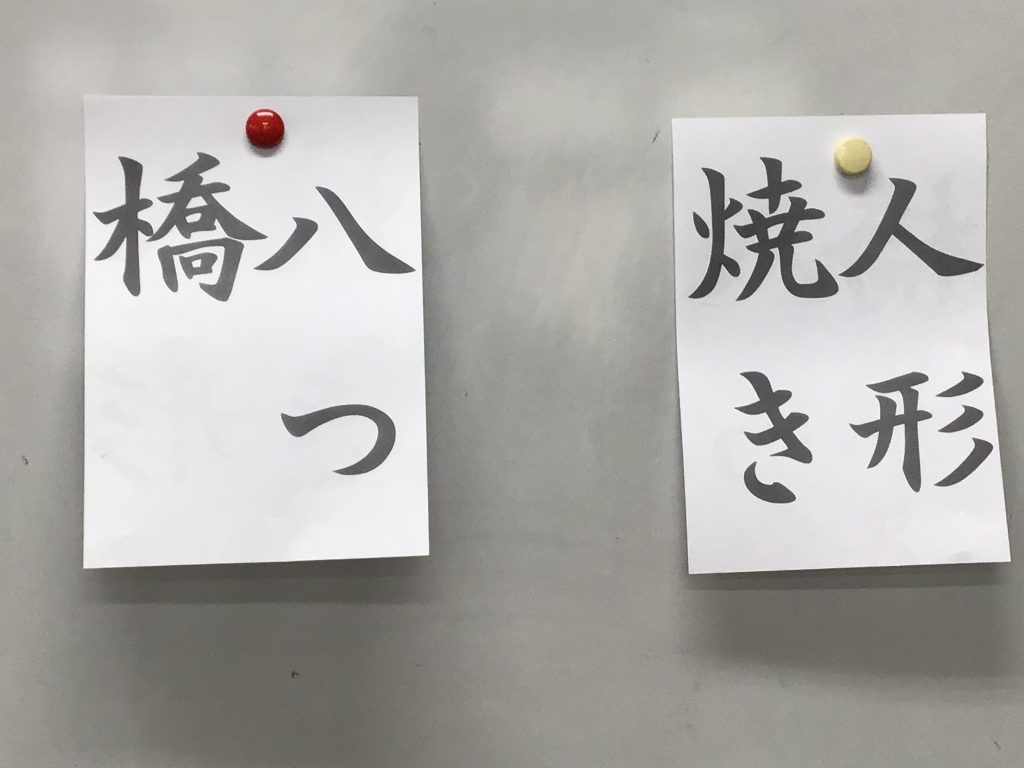 八つ
橋
人形
焼き